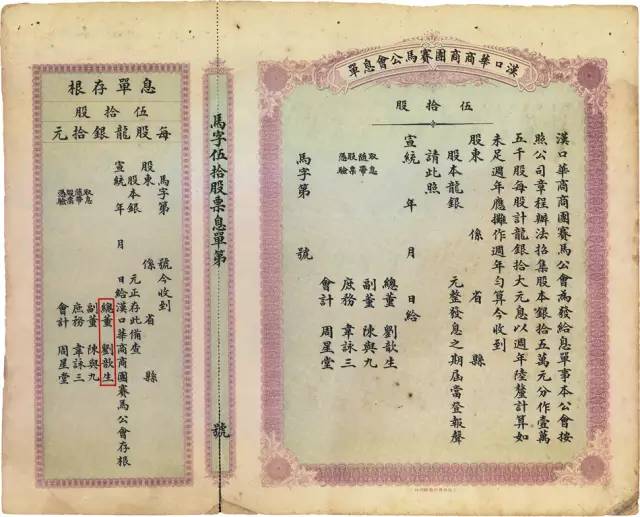 漢口華商商團賽馬公會息單
伍拾股
漢口華商商團賽馬公會為發給息單事本公會按
照公司章程辦法招集股本銀拾五萬元分作壹萬
五千股每股計龍銀拾大元息以週年陸釐計算如
未足週年應攤作週年勻算今收到
股東 係 省 縣
股本龍銀 元整發息之期屆當登報聲
請此照
宣統 年 月 日給
總董 劉歆生
副董 陳與九
庶務 韋詠三
會計 周星堂
取息
隨帶
股票
憑驗
馬字第 號
馬字伍拾股票息單第 號
息單存根
伍拾股
每股龍銀拾元
馬字第 號今收到
股東 係 省 縣
股本銀 元正存此備查
宣統 年 月 日給漢口華商商團賽馬公會存根
總董 劉歆生
副董 陳與九
庶務 韋詠三
會計 周星堂
取息
隨帶
股票
憑驗